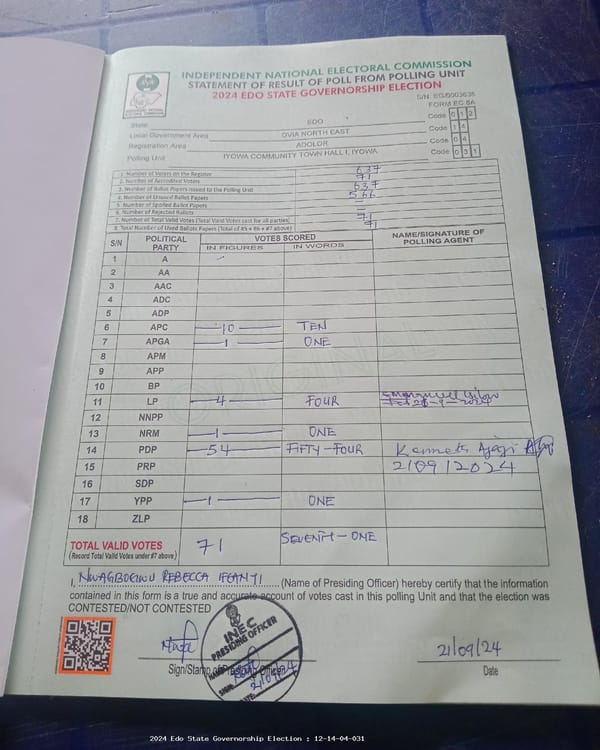 INDEPENDENT NATIONAL ELECTORAL COMMISSION
STATEMENT OF RESULT OF POLL FROM POLLING UNIT
2024 EDO STATE GOVERNORSHIP ELECTION
S/N EG/0003635
FORM EC 8A
State EDO Code 0 1 2
Local Government Area OVIA NORTH EAST Code 1 4
Registration Area ADOLOR Code 0 4
Polling Unit IYOWA COMMUNITY TOWN HALL I, IYOWA Code 0 3 1
1. Number of Voters on the Register 637
2. Number of Accredited Voters 71
3. Number of Ballot Papers Issued to the Polling Unit 637
4. Number of Unused Ballot Papers 566
5. Number of Spoiled Ballot Papers -
6. Number of Rejected Ballots -
7. Number of Total Valid Votes (Total Valid Votes cast for all parties) 71
8. Total Number of Used Ballots Papers (Total of #5 + #6 + #7 above) 71
S/N POLITICAL PARTY VOTES SCORED NAME/SIGNATURE OF POLLING AGENT
IN FIGURES IN WORDS
1 A
2 AA
3 AAC
4 ADC
5 ADP
6 APC 10 TEN
7 APGA 1 ONE
8 APM
9 APP
10 BP
11 LP 4 FOUR
12 NNPP
13 NRM 1 ONE
14 PDP 54 FIFTY-FOUR Kenneth Ajayi
15 PRP 21/09/2024
16 SDP
17 YPP 1 ONE
18 ZLP
TOTAL VALID VOTES 71 SEVENTY-ONE
(Record Total Valid Votes under #7 above)
I, NWAGBOKINU REBECCA IFEANYI (Name of Presiding Officer) hereby certify that the information
contained in this form is a true and accurate account of votes cast in this polling Unit and that the election was
CONTESTED/NOT CONTESTED
INEC
PRESIDING OFFICER
21/09/24
Sign/Stamp of Presiding Officer
21/09/24
Date
2024 Edo State Governorship Election : 12-14-04-031